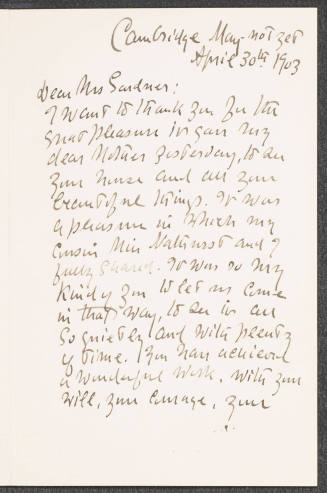 Cambridge May - not yet
April 30th 1903
Dear Mrs Gardner:
I want to thank you for the
great pleasure it gave my
dear Mother yesterday, to see
your house and all your
beautiful things. It was
a pleasure in which my
cousin Miss Nathurst and I
fully shared. It was so very
kind of you to let us come
in that way, to see it all
so quietly and with plenty
of time. You have achieved
a wonderful work. With your
will, your courage, your